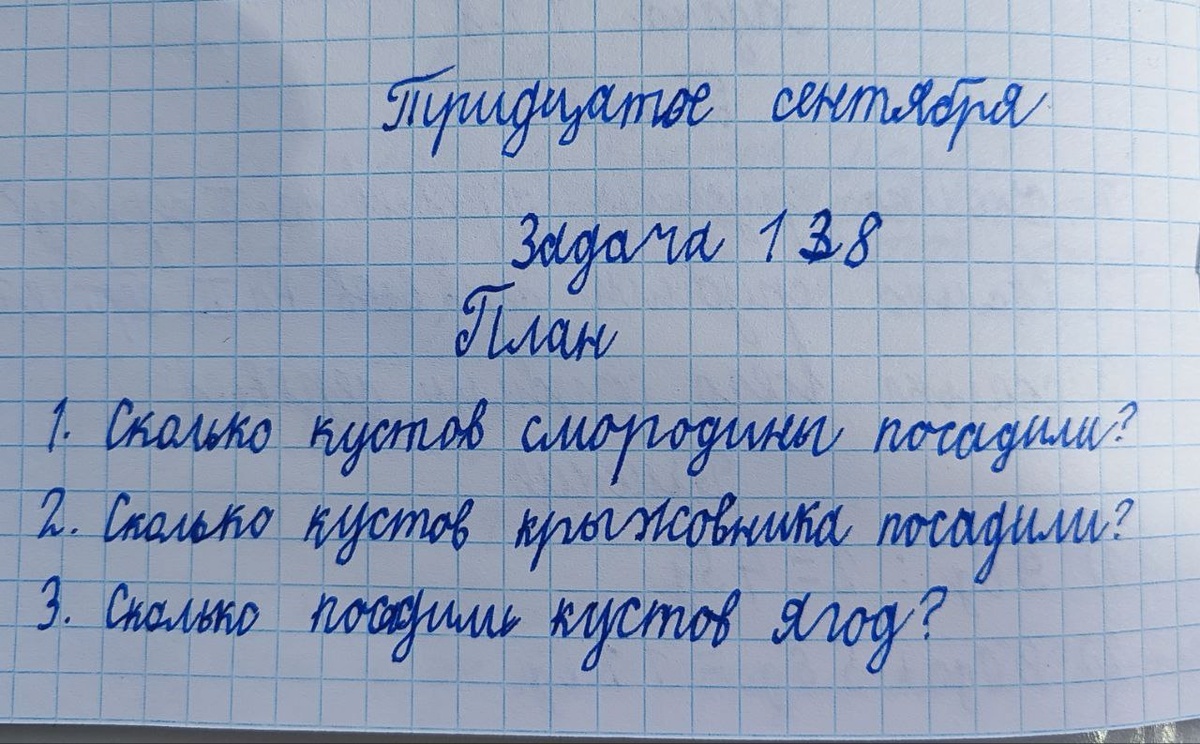 Тридцатое сентября
Задача 138
План
1. Сколько кустов смородины посадили?
2. Сколько кустов крыжовника посадили?
3. Сколько посадили кустов ягод?